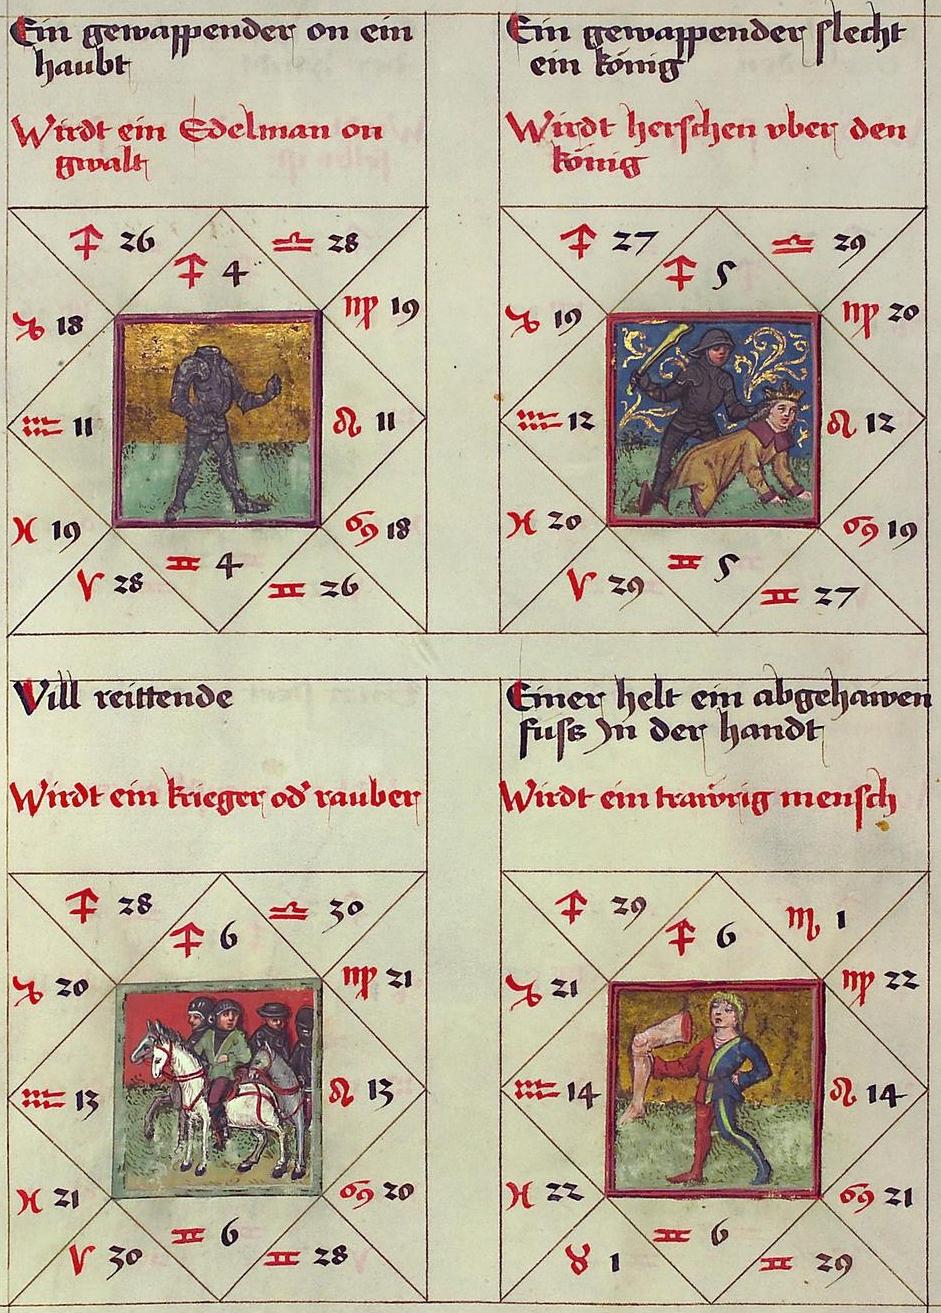 Ein gewappender on ein
haubt
Wirdt ein Edelman on
gwalt
♐ 26
♎ 28
♐ 4
♑ 18
♍ 19
♒ 11
♌ 11
♓ 19
♋ 18
♈ 28
♊ 4
♊ 26
Ein gewappender slecht
ein könig
Wirdt herschen vber den
könig
♐ 27
♎ 29
♐ 5
♑ 19
♍ 20
♒ 12
♌ 12
♓ 20
♋ 19
♈ 29
♊ 5
♊ 27
Vill reittende
Wirdt ein krieger od' rauber
♐ 28
♎ 30
♐ 6
♑ 20
♍ 21
♒ 13
♌ 13
♓ 21
♋ 20
♈ 30
♊ 6
♊ 28
Einer helt ein abgehawen
fuß Jn der handt
Wirdt ein trawrig mensch
♐ 29
♏ 1
♐ 6
♑ 21
♍ 22
♒ 14
♌ 14
♓ 22
♋ 21
♉ 1
♊ 6
♊ 29